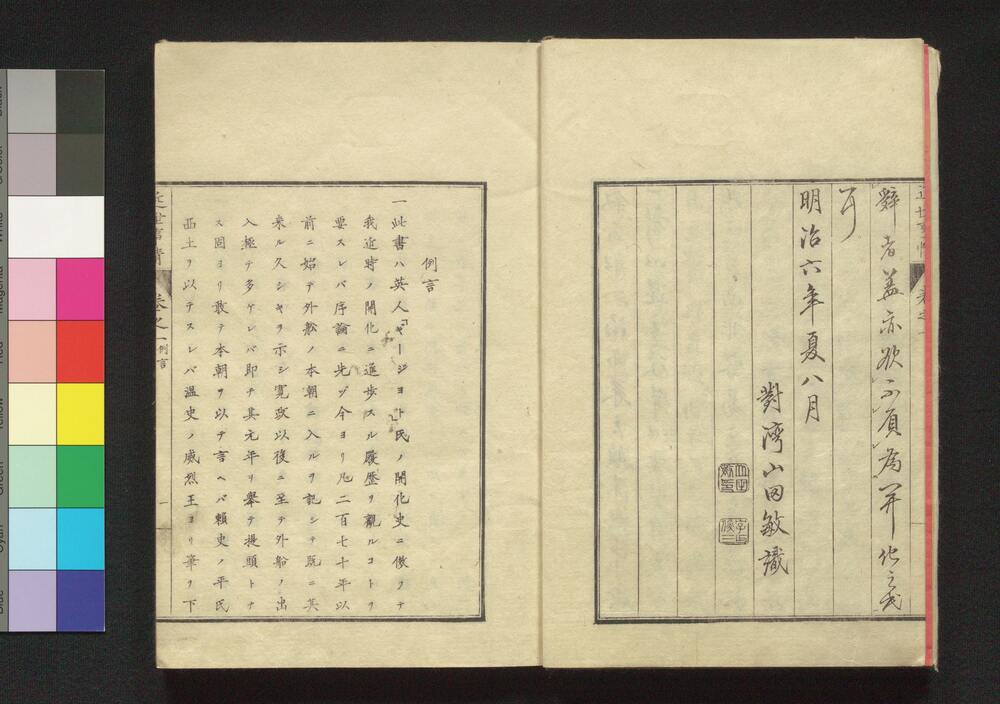 辭者蓋亦欲不負爲開化之民
耳
明治六年夏八月
對灣山田敏識
例言
一此書ハ英人「ギージヨト」氏ノ開化史ニ倣フテ
我近時ノ開化ニ進歩スル履歴ヲ觀ルコトヲ
要スレバ序論ニ先ヅ今ヨリ凡二百七十年以
前ニ始テ外舩ノ本朝ニ入ルヲ記シテ既ニ其
来ル久シキヲ示シ寛政以後ニ至テ外船ノ出
入極テ多ケレバ即チ其元年ヲ擧テ提頭トナ
ス固ヨリ敢テ本朝ヲ以テ言ヘバ頼史ノ平氏
西土ヲ以テスレバ温史ノ威烈王ヨリ筆ヲ下
巻之一
例言
一